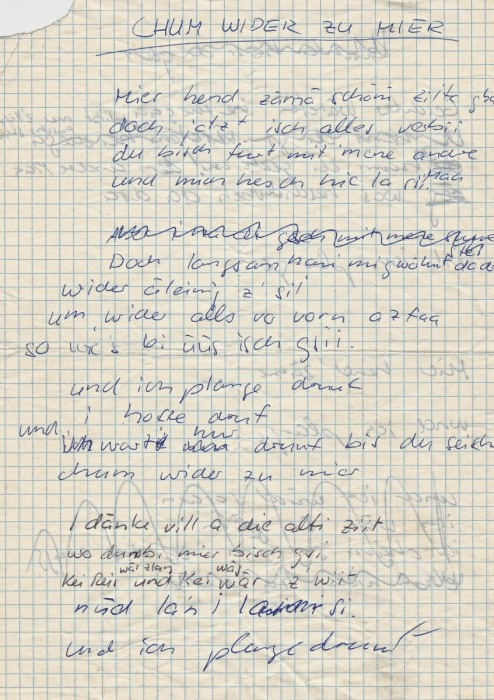 CHUM WIDER ZU MIER
Mier hend zämä schöni zilte gha
doch jetzt isch alles verbii
du bisch furt mit mene andre
und mich hesch hie la sii. Maa
Doch langsam han i mi gwöhnt
wider äleinig z'sii
um wider alls vo vorn azfaa
so wie's bi üüs isch gsii.
und ich plange druuf
und i hoffe druf
und wart nur druuf bis du seisch
chum wider zu mier
I dänke vill a die alti ziit
wo du no bi mier bisch gsi
Kei Reis wär z'lang und Kei wäg wär z'wiit
nüd lan i si.
und ich plange druuf